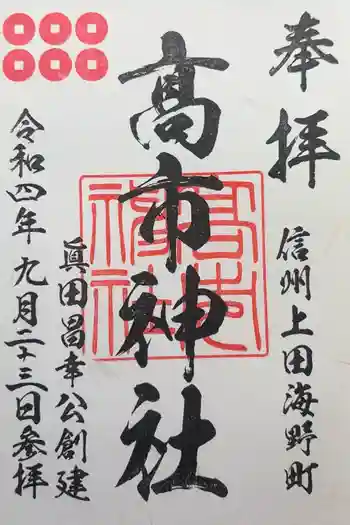 奉拝
信州上田海野町
高市神社
眞田昌幸公創建
令和四年九月二十三日参拝